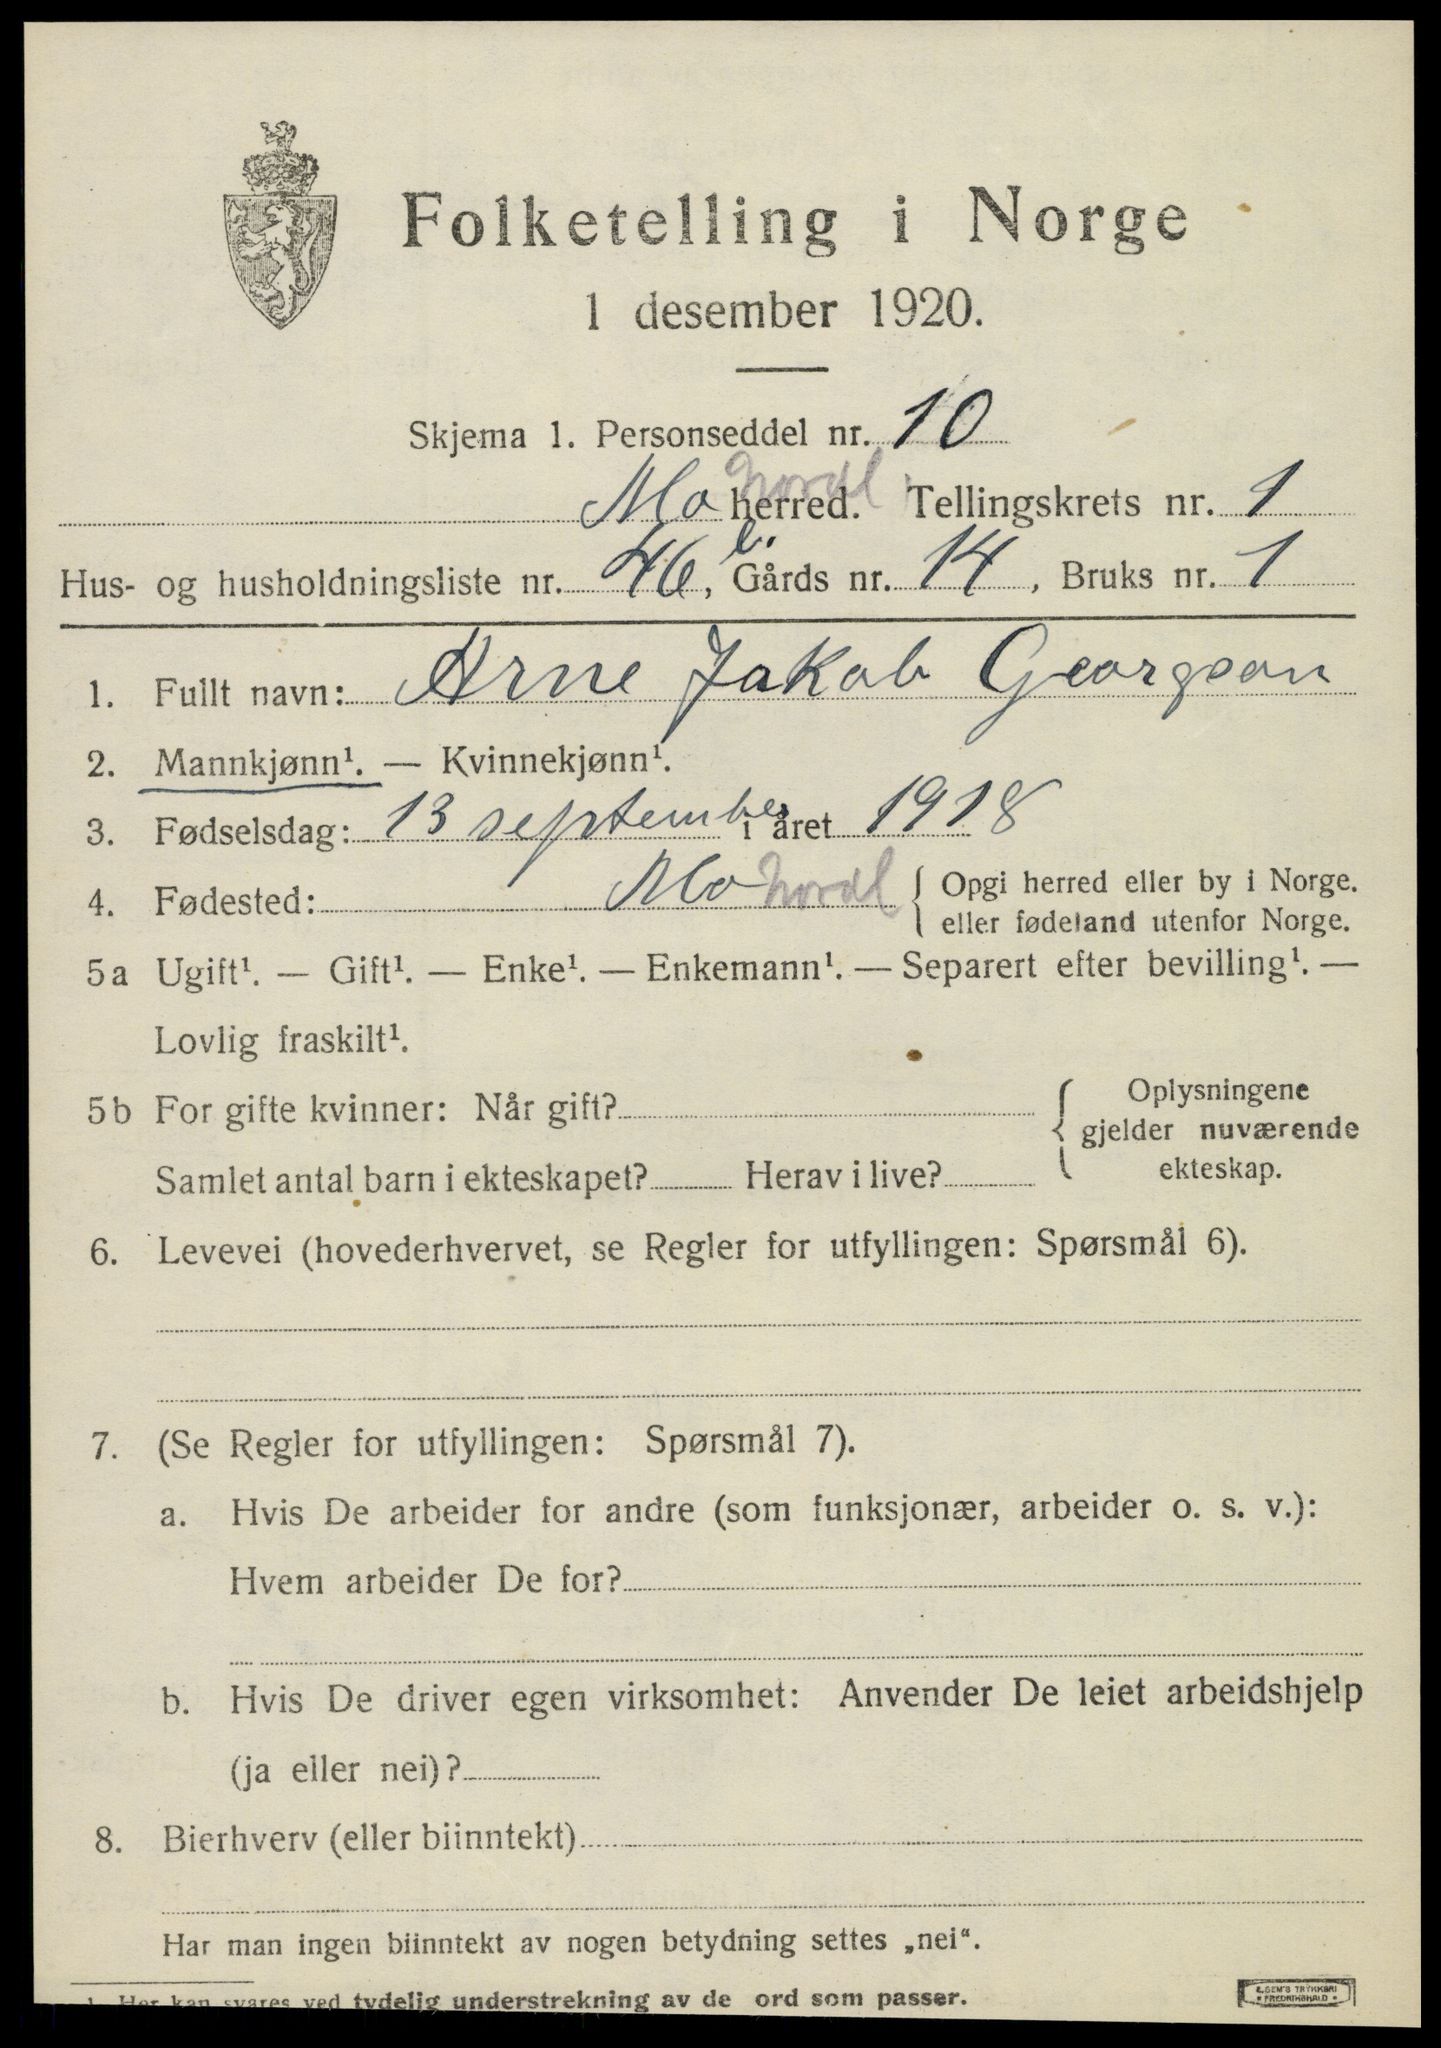 Folketelling i Norge
1 desember 1920.
Skjema 1. Personseddel nr. 10
Mo herred. Nordl. Tellingskrets nr. 1
Hus- og husholdningsliste nr. 46 b., Gårds nr. 14, Bruks nr. 1
1. Fullt navn: Arne Jakob Georgson
2. Mannkjønn¹. — Kvinnekjønn¹.
3. Fødselsdag: 13 september i året 1918
4. Fødested: Mo Nordl { Opgi herred eller by i Norge.
eller fødeland utenfor Norge.
5a Ugift¹. — Gift¹. — Enke¹. — Enkemann¹. — Separert efter bevilling¹. —
Lovlig fraskilt¹.
5b For gifte kvinner: Når gift? { Oplysningene
gjelder nuværende
Samlet antal barn i ekteskapet? Herav i live? ekteskap.
6. Levevei (hovederhvervet, se Regler for utfyllingen: Spørsmål 6).
7. (Se Regler for utfyllingen: Spørsmål 7).
a. Hvis De arbeider for andre (som funksjonær, arbeider o. s. v.):
Hvem arbeider De for?
b. Hvis De driver egen virksomhet: Anvender De leiet arbeidshjelp
(ja eller nei)?
8. Bierhverv (eller biinntekt)
Har man ingen biinntekt av nogen betydning settes „nei“.
1. Her kan svares ved tydelig understrekning av de ord som passer.
E. SEM'S TRYKKERI
• FREDRIKSHALD •